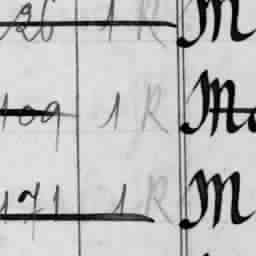 126 1 R M
109 1 R M
171 1 R M